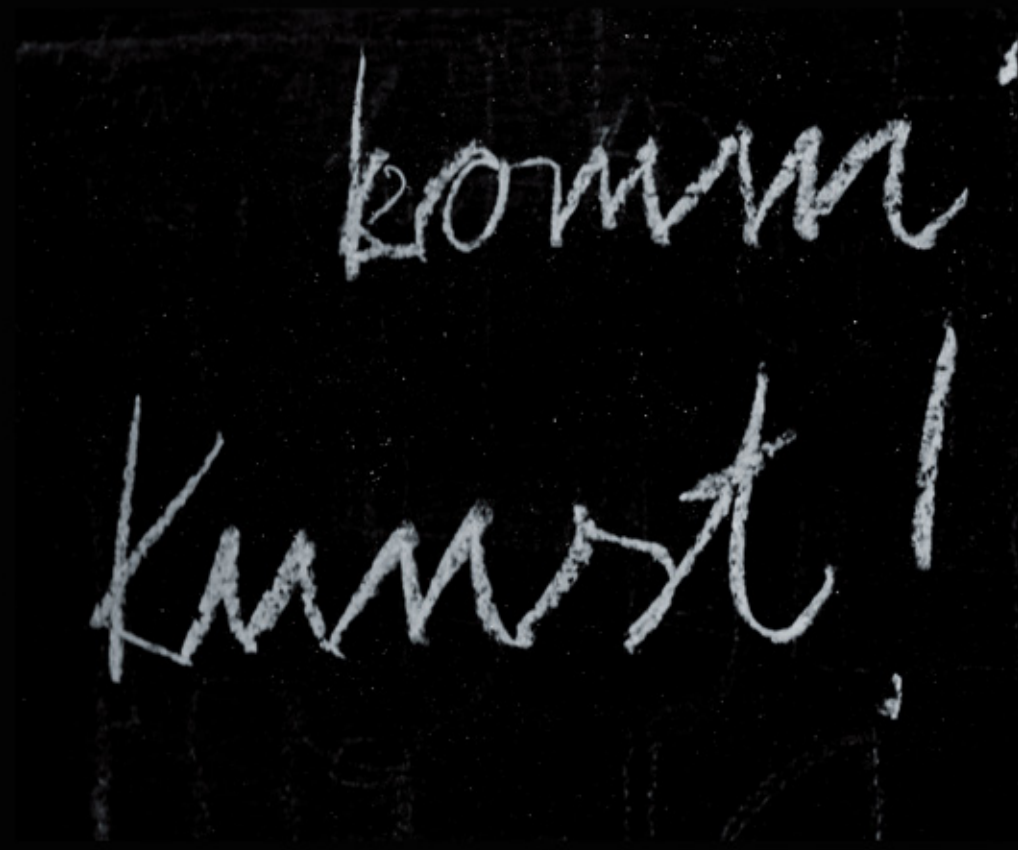 komm
Kunst!